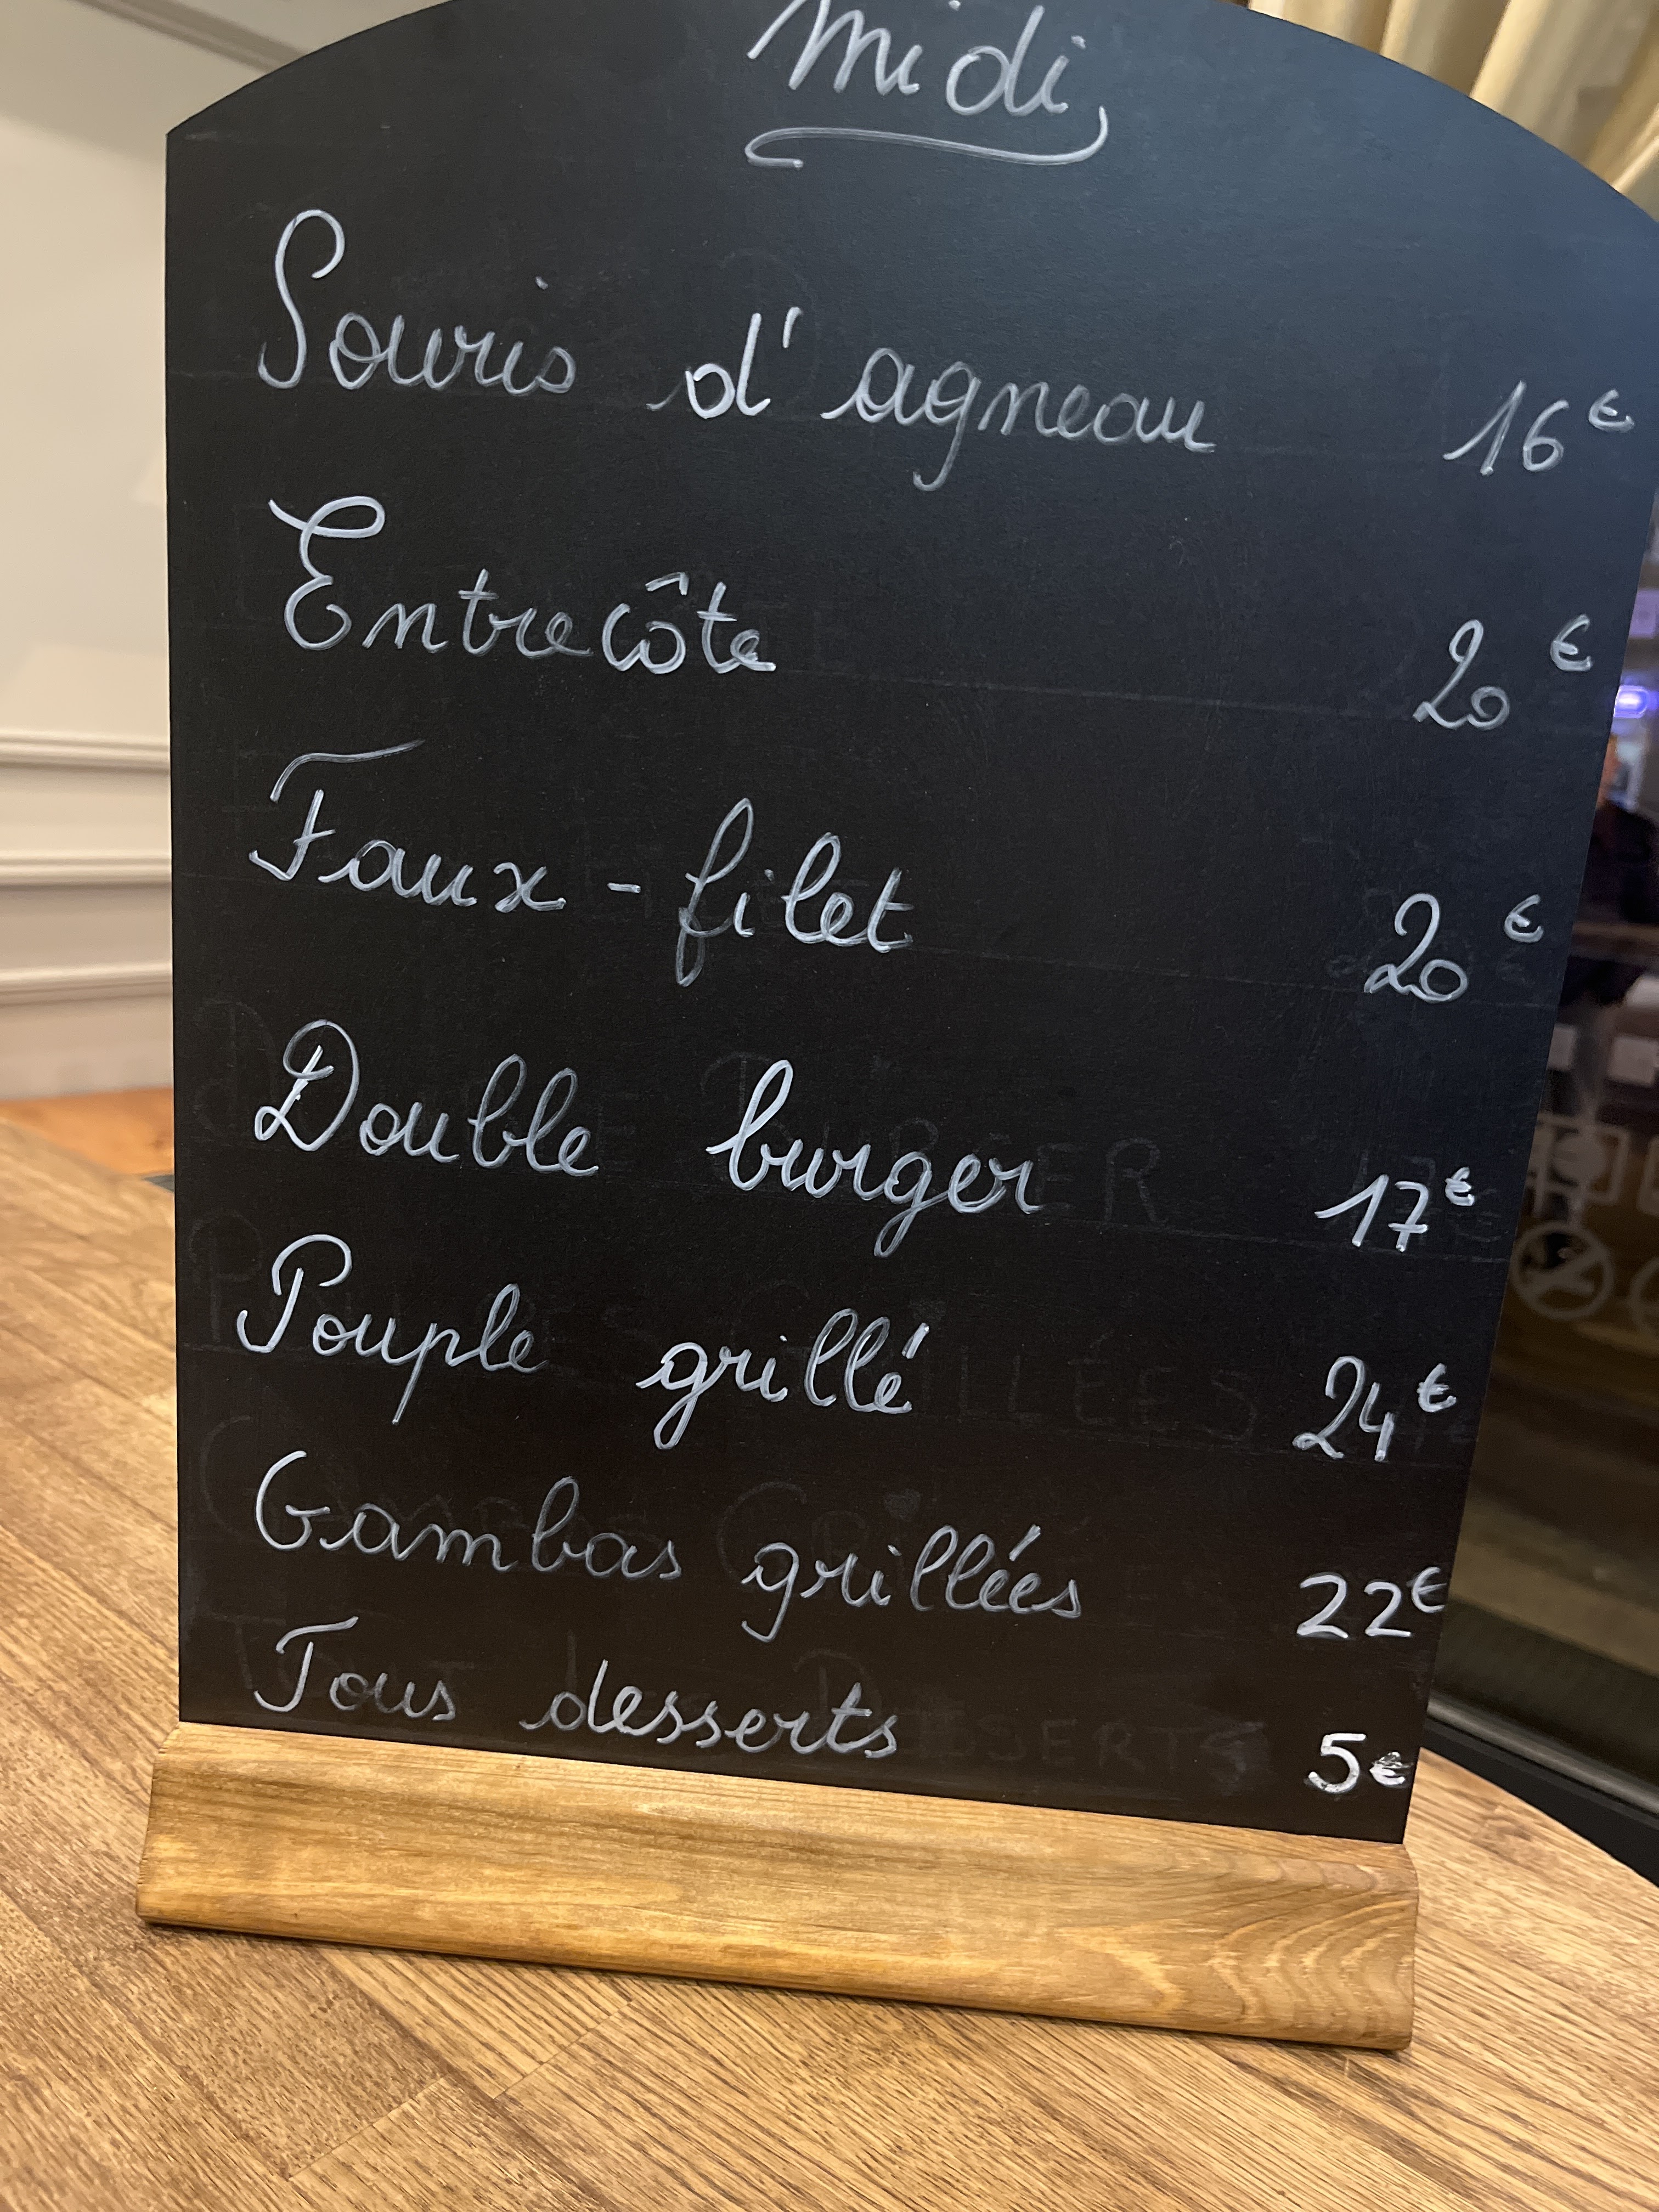 Midi
Souris d'agneau 16€
Entrecôte 20€
Faux-filet 20€
Double burger 17€
Pouple grillé 24€
Gambas grillées 22€
Tous desserts 5€